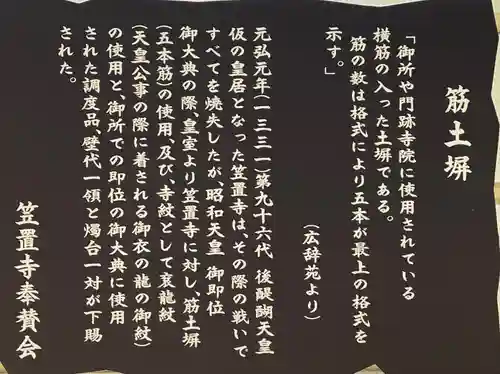 筋土塀
「御所や門跡寺院に使用されている
横筋の入った土塀である。
筋の数は格式により五本が最上の格式を
示す。」
(広辞苑より)
元弘元年(一三三一)第九十六代 後醍醐天皇
仮の皇居となった笠置寺は、その際の戦いで
すべてを焼失したが、昭和天皇 御即位
御大典の際、皇室より笠置寺に対し、筋土塀
(五本筋)の使用、及び、寺紋として袞龍紋
(天皇公事の際に着される御衣の龍の御紋)
の使用と、御所での即位の御大典に使用
された調度品、壁代一領と燭台一対が下賜
された。
笠置寺奉賛会